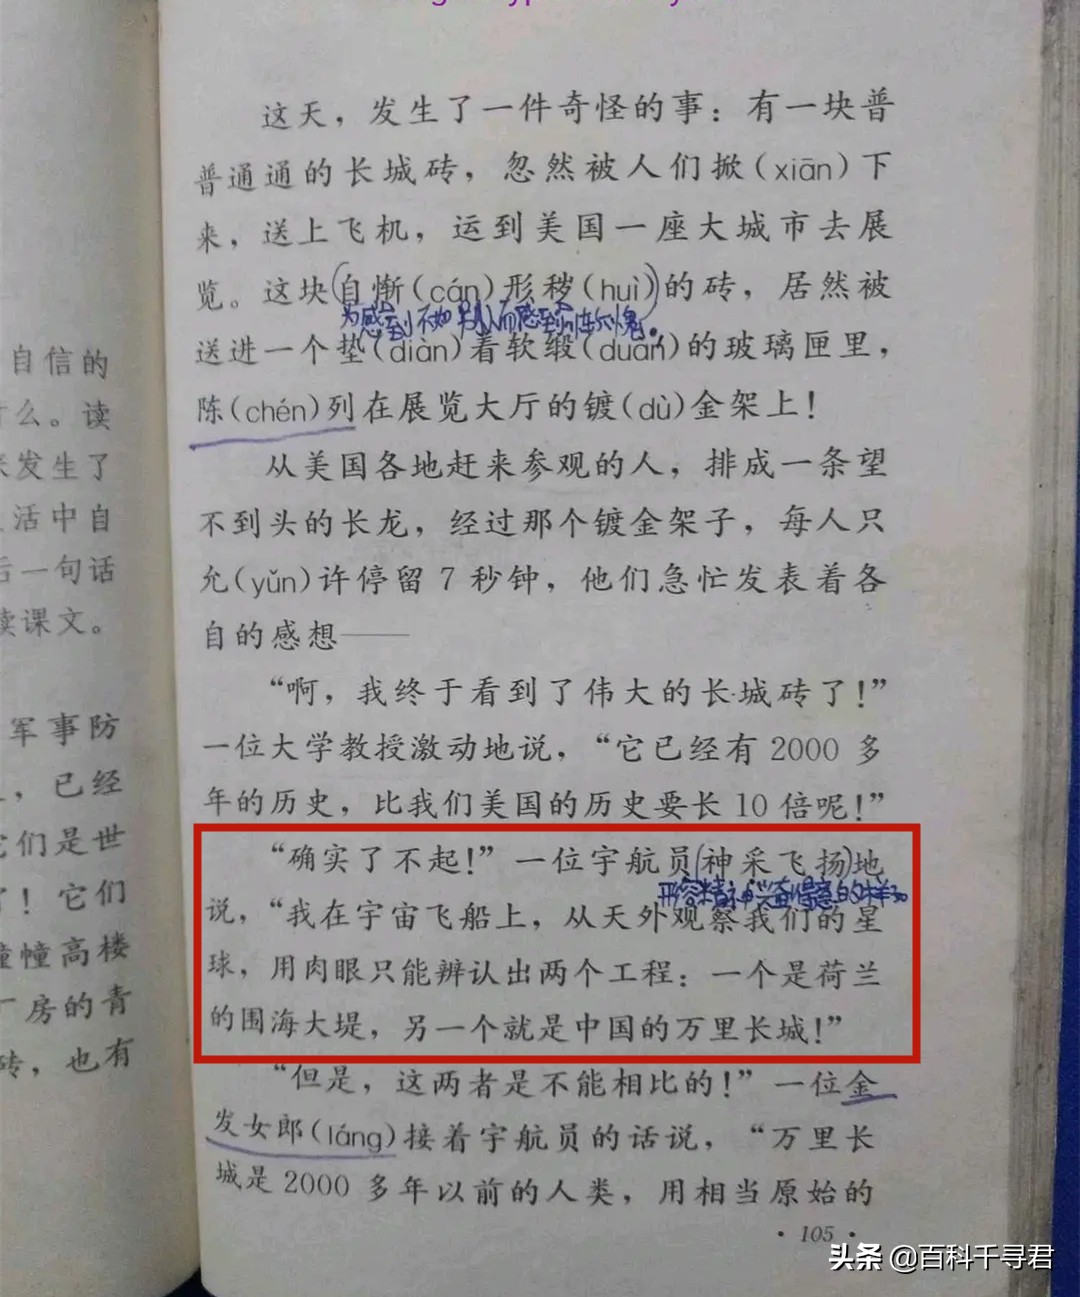 自信的
什么。读
发生了
活中自
后一句话
读课文。
军事防
，已经
它们是世
了！它们
幢幢高楼
厂房的青
砖，也有
这天，发生了一件奇怪的事：有一块普
普通通的长城砖，忽然被人们掀(xiān)下
来，送上飞机，运到美国一座大城市去展
览。这块(自惭(cán)形秽(huì))的砖，居然被
送进一个垫(diàn)着软缎(duàn)的玻璃匣里，
陈(chén)列在展览大厅的镀(dù)金架上！
从美国各地赶来参观的人，排成一条望
不到头的长龙，经过那个镀金架子，每人只
允(yǔn)许停留 7 秒钟，他们急忙发表着各
自的感想——
“啊，我终于看到了伟大的长城砖了！”
一位大学教授激动地说，“它已经有 2000 多
年的历史，比我们美国的历史要长 10 倍呢！”
“确实了不起！”一位宇航员(神采飞扬)地
形容精神兴奋得意的样子
说，“我在宇宙飞船上，从天外观察我们的星
球，用肉眼只能辨认出两个工程：一个是荷兰
的围海大堤，另一个就是中国的万里长城！”
“但是，这两者是不能相比的！”一位金
发女郎(láng)接着宇航员的话说，“万里长
城是 2000 多年以前的人类，用相当原始的
·105·
头条 @百科千寻君